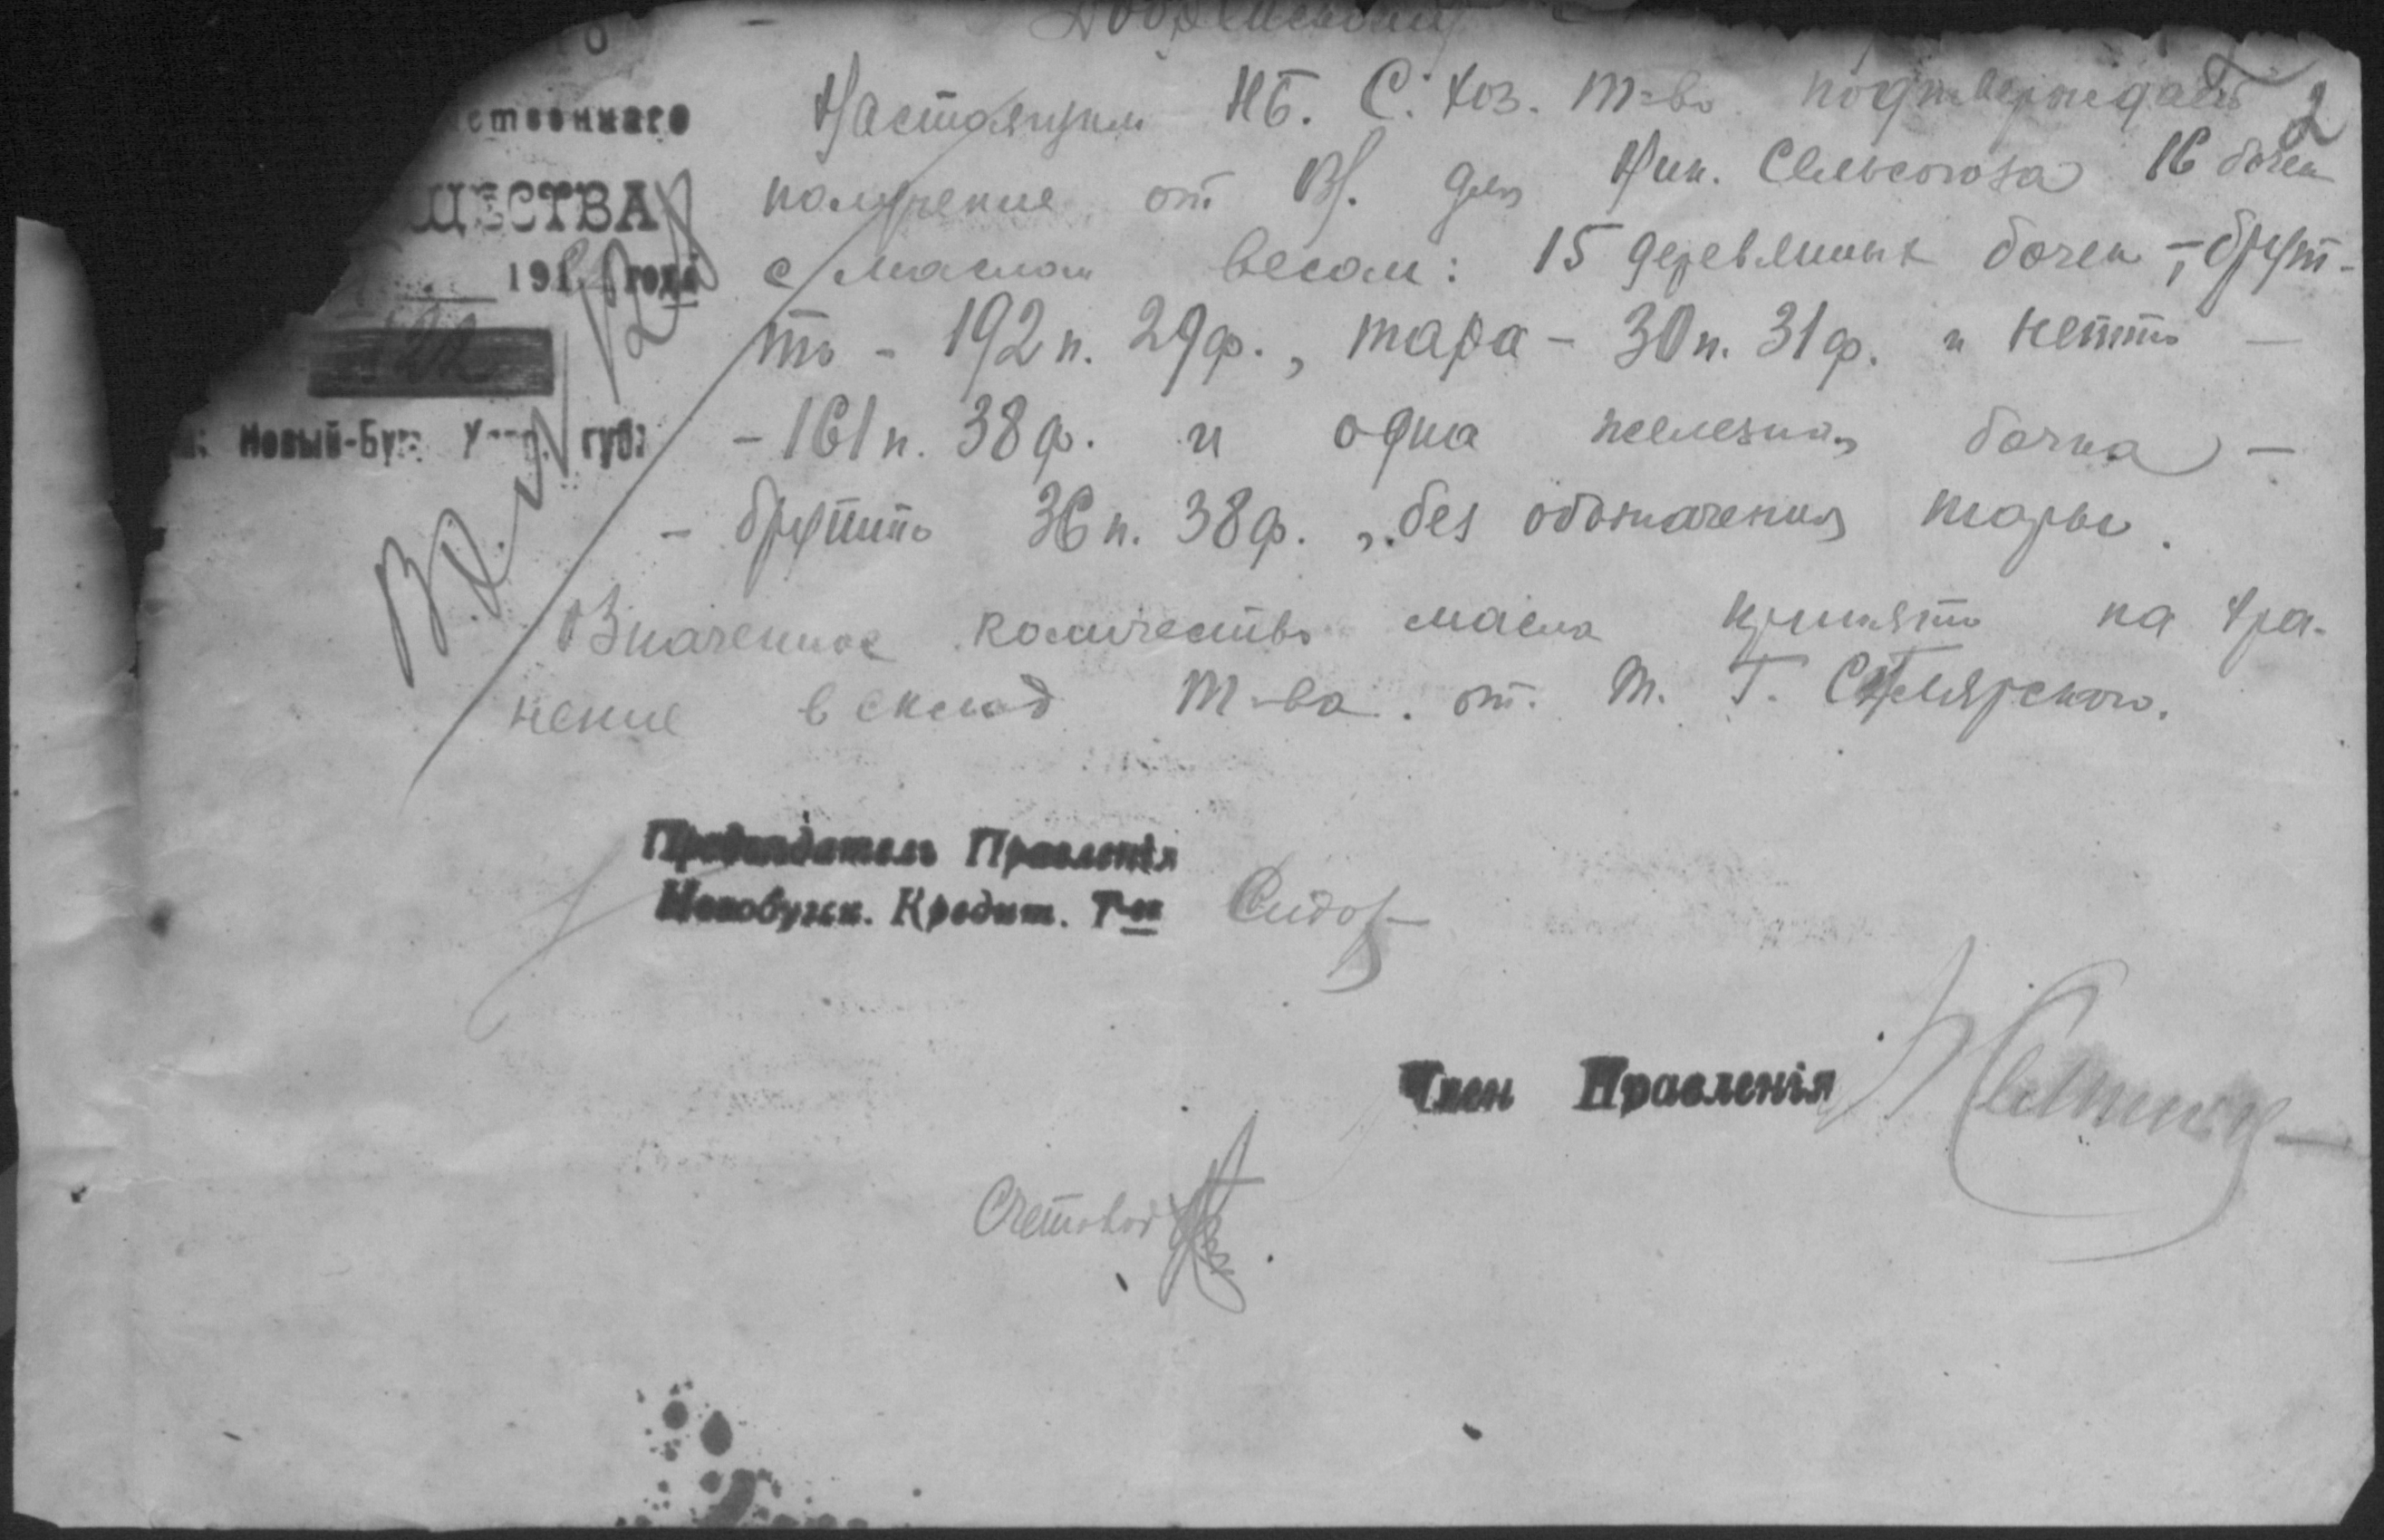 2
Настоящим НБ. С. Хоз. т-во подтверждает
ственнаго
получение от В. для Ник. Сельсоюза 16 бочек
ЩЕСТВА
с маслом весом: 15 деревянных бочек – брут-
191 года
то – 192 п. 29 ф., тара – 30 п. 31 ф. и нетто –
122
– 161 п. 38 ф. и одна железная бочка –
Новый-Буг губ.
– брутто 36 п. 38 ф., без обозначения тары.
Означенное количество масла принято на хра-
нение в склад т-ва от т. Г. Столярского.
Председатель Правленія
Новобугск. Кредит. Т-ва Сидор
Член Правленія
Счетовод